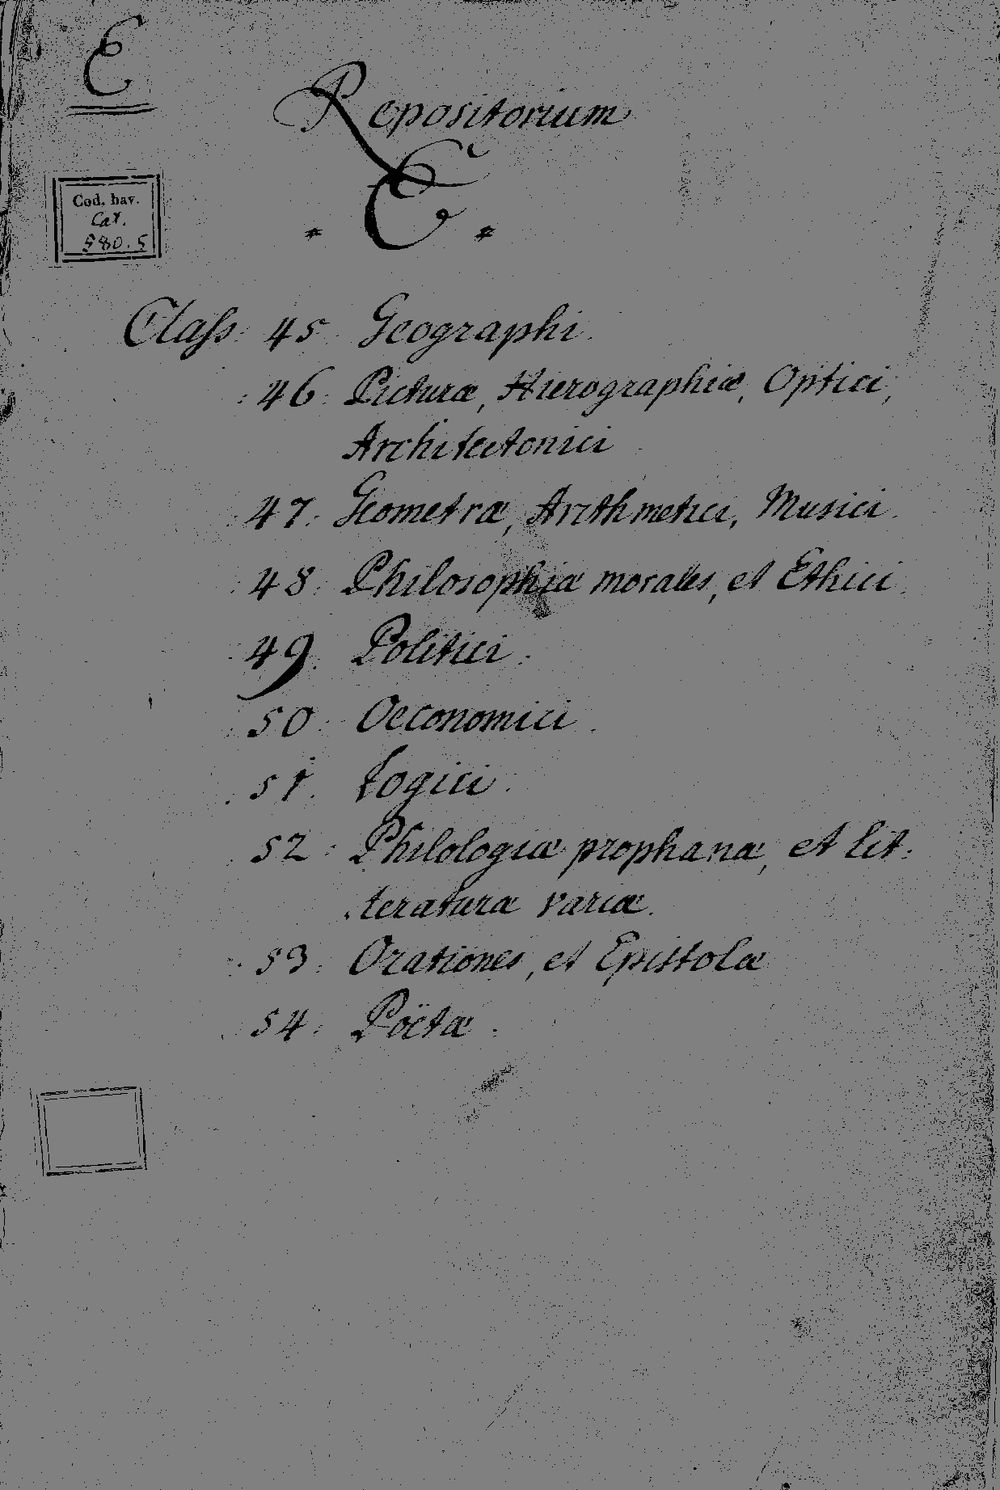 E
Repositorium
E.
Cod. bav.
Cat.
580.5
Class. 45. Geographi.
46. Picturæ, Hierographiæ, Optici,
Architectonici
47. Geometræ, Arithmetici, Musici.
48. Philosophiæ morales, et Ethici.
49. Politici.
50. Oeconomici.
51. Logici.
52. Philologiæ prophanæ, et lit:
teraturæ variæ.
53. Orationes, et Epistolæ
54. Poëtæ.